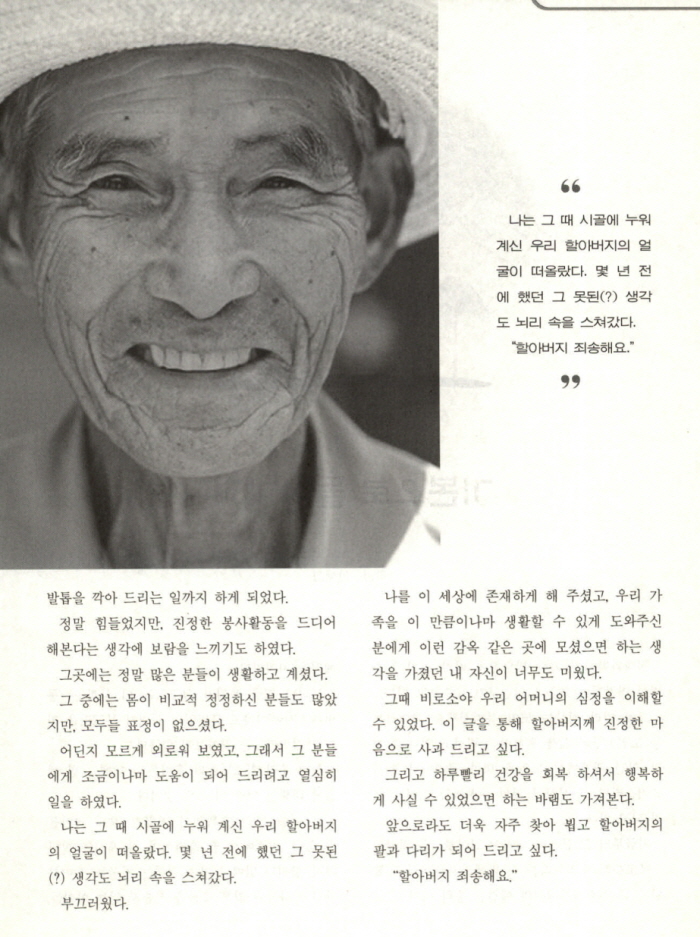 “
나는 그 때 시골에 누워
계신 우리 할아버지의 얼
굴이 떠올랐다. 몇 년 전
에 했던 그 못된(?) 생각
도 뇌리 속을 스쳐갔다.
“할아버지 죄송해요.”
”
발톱을 깍아 드리는 일까지 하게 되었다.
정말 힘들었지만, 진정한 봉사활동을 드디어
해본다는 생각에 보람을 느끼기도 하였다.
그곳에는 정말 많은 분들이 생활하고 계셨다.
그 중에는 몸이 비교적 정정하신 분들도 많았
지만, 모두들 표정이 없으셨다.
어딘지 모르게 외로워 보였고, 그래서 그 분들
에게 조금이나마 도움이 되어 드리려고 열심히
일을 하였다.
나는 그 때 시골에 누워 계신 우리 할아버지
의 얼굴이 떠올랐다. 몇 년 전에 했던 그 못된
(?) 생각도 뇌리 속을 스쳐갔다.
부끄러웠다.
나를 이 세상에 존재하게 해 주셨고, 우리 가
족을 이 만큼이나마 생활할 수 있게 도와주신
분에게 이런 감옥 같은 곳에 모셨으면 하는 생
각을 가졌던 내 자신이 너무도 미웠다.
그때 비로소야 우리 어머니의 심정을 이해할
수 있었다. 이 글을 통해 할아버지께 진정한 마
음으로 사과 드리고 싶다.
그리고 하루빨리 건강을 회복 하셔서 행복하
게 사실 수 있었으면 하는 바램도 가져본다.
앞으로라도 더욱 자주 찾아 뵙고 할아버지의
팔과 다리가 되어 드리고 싶다.
“할아버지 죄송해요.”